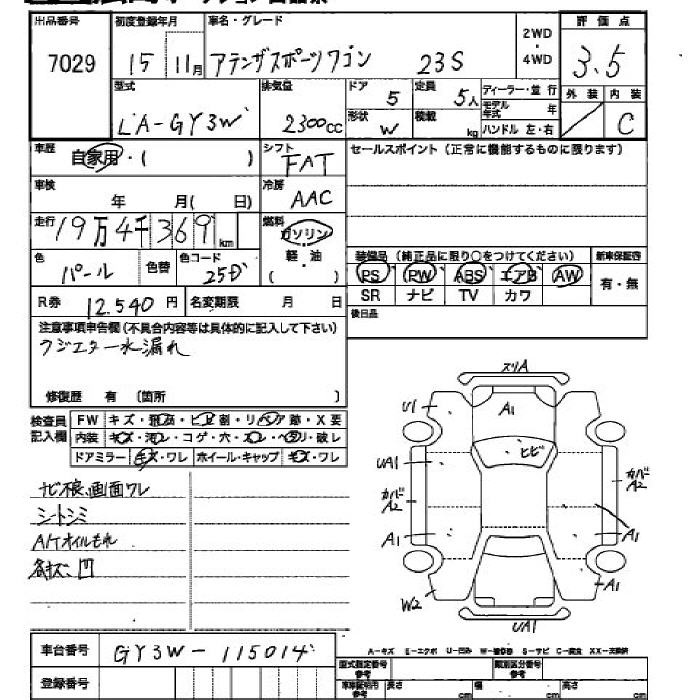 出品番号 初度登録年月 車名・グレード 2WD・4WD 評価点
7029 15 11月 アテンザスポーツワゴン 23S 3.5
型式 排気量 ドア 5 定員 5人 ディーラー・並行 外装 内装
LA-GY3W 2300cc 形状 W 積載 kg モデル年式 年 ハンドル 左・右 C
車歴 自家用・( ) シフト FAT セールスポイント(正常に機能するものに限ります)
車検 年 月( 日) 冷房 AAC
走行 19万4千369km 燃料 ガソリン 軽・油 ( )
色 パール 色替 色コード 25D
装備品(純正品に限り○をつけてください) 新車保証書
PS PW ABS エアB AW 有・無
SR ナビ TV カワ
R券 12.540円 名変期限 月 日 後日品
注意事項申告欄(不具合内容等は具体的に記入して下さい)
ラジエター水漏れ
修復歴 有 〔箇所 〕
検査員記入欄 FW キズ・飛石・ヒビ割・リペア跡・X要
内装 キズ・汚レ・コゲ・穴・スレ・ヘタリ・破レ
ドアミラー キズ・ワレ ホイール・キャップ キズ・ワレ
ナビ不良、画面ワレ
シートシミ
A/Tオイルもれ
スリA
U1 A1
ヒビ
UA1
カバー A2 カバー A2
A1 A1
W2 A1
UA1
A-キズ E-エクボ U-凹み W-補修跡 S-サビ C-腐食 XX-交換済
車台番号 GY3W-115014
登録番号
型式指定番号 参考 類別区分番号 参考
車庫証明用 参考 長さ cm 幅 cm 高さ cm